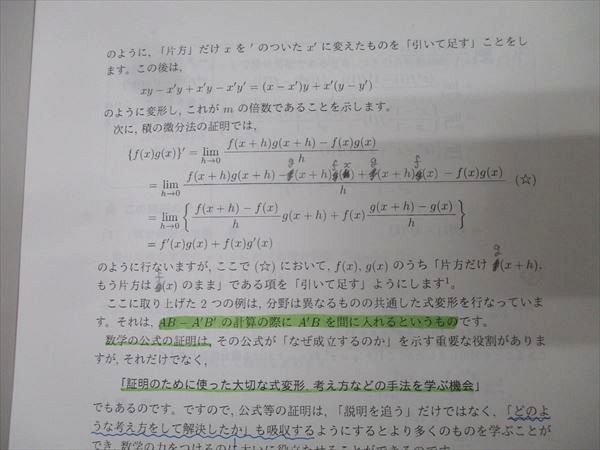 のように，「片方」だけ x を ′ のついた x′ に変えたものを「引いて足す」ことをし
ます。この後は，
xy − x′y + x′y − x′y′ = (x − x′)y + x′(y − y′)
のように変形し，これが m の倍数であることを示します。
次に，積の微分法の証明では，
{f(x)g(x)}′ = lim_{h→0} \frac{f(x+h)g(x+h) − f(x)g(x)}{h}
= lim_{h→0} \frac{f(x+h)g(x+h) − g(x+h)f(x) + g(x+h)f(x) − f(x)g(x)}{h} (☆)
= lim_{h→0} { \frac{f(x+h) − f(x)}{h} g(x+h) + f(x) \frac{g(x+h) − g(x)}{h} }
= f′(x)g(x) + f(x)g′(x)
のように行ないますが，ここで (☆) において，f(x), g(x) のうち「片方だけ g(x+h),
もう片方は f(x) のまま」である項を「引いて足す」ようにします¹。
ここに取り上げた 2 つの例は，分野は異なるものの共通した式変形を行なっていま
す。それは，AB − A′B′ の計算の際に A′B を間に入れるというものです。
数学の公式の証明は，その公式が「なぜ成立するのか」を示す重要な役割がありま
すが，それだけでなく，
「証明のために使った大切な式変形，考え方などの手法を学ぶ機会」
でもあるのです。ですので，公式等の証明は，「説明を追う」だけではなく，「どのよ
うな考え方をして解決したか」も吸収するようにするとより多くのものを学ぶことが
でき，数学の力をつけるのに大いに役立たせることができるのです。